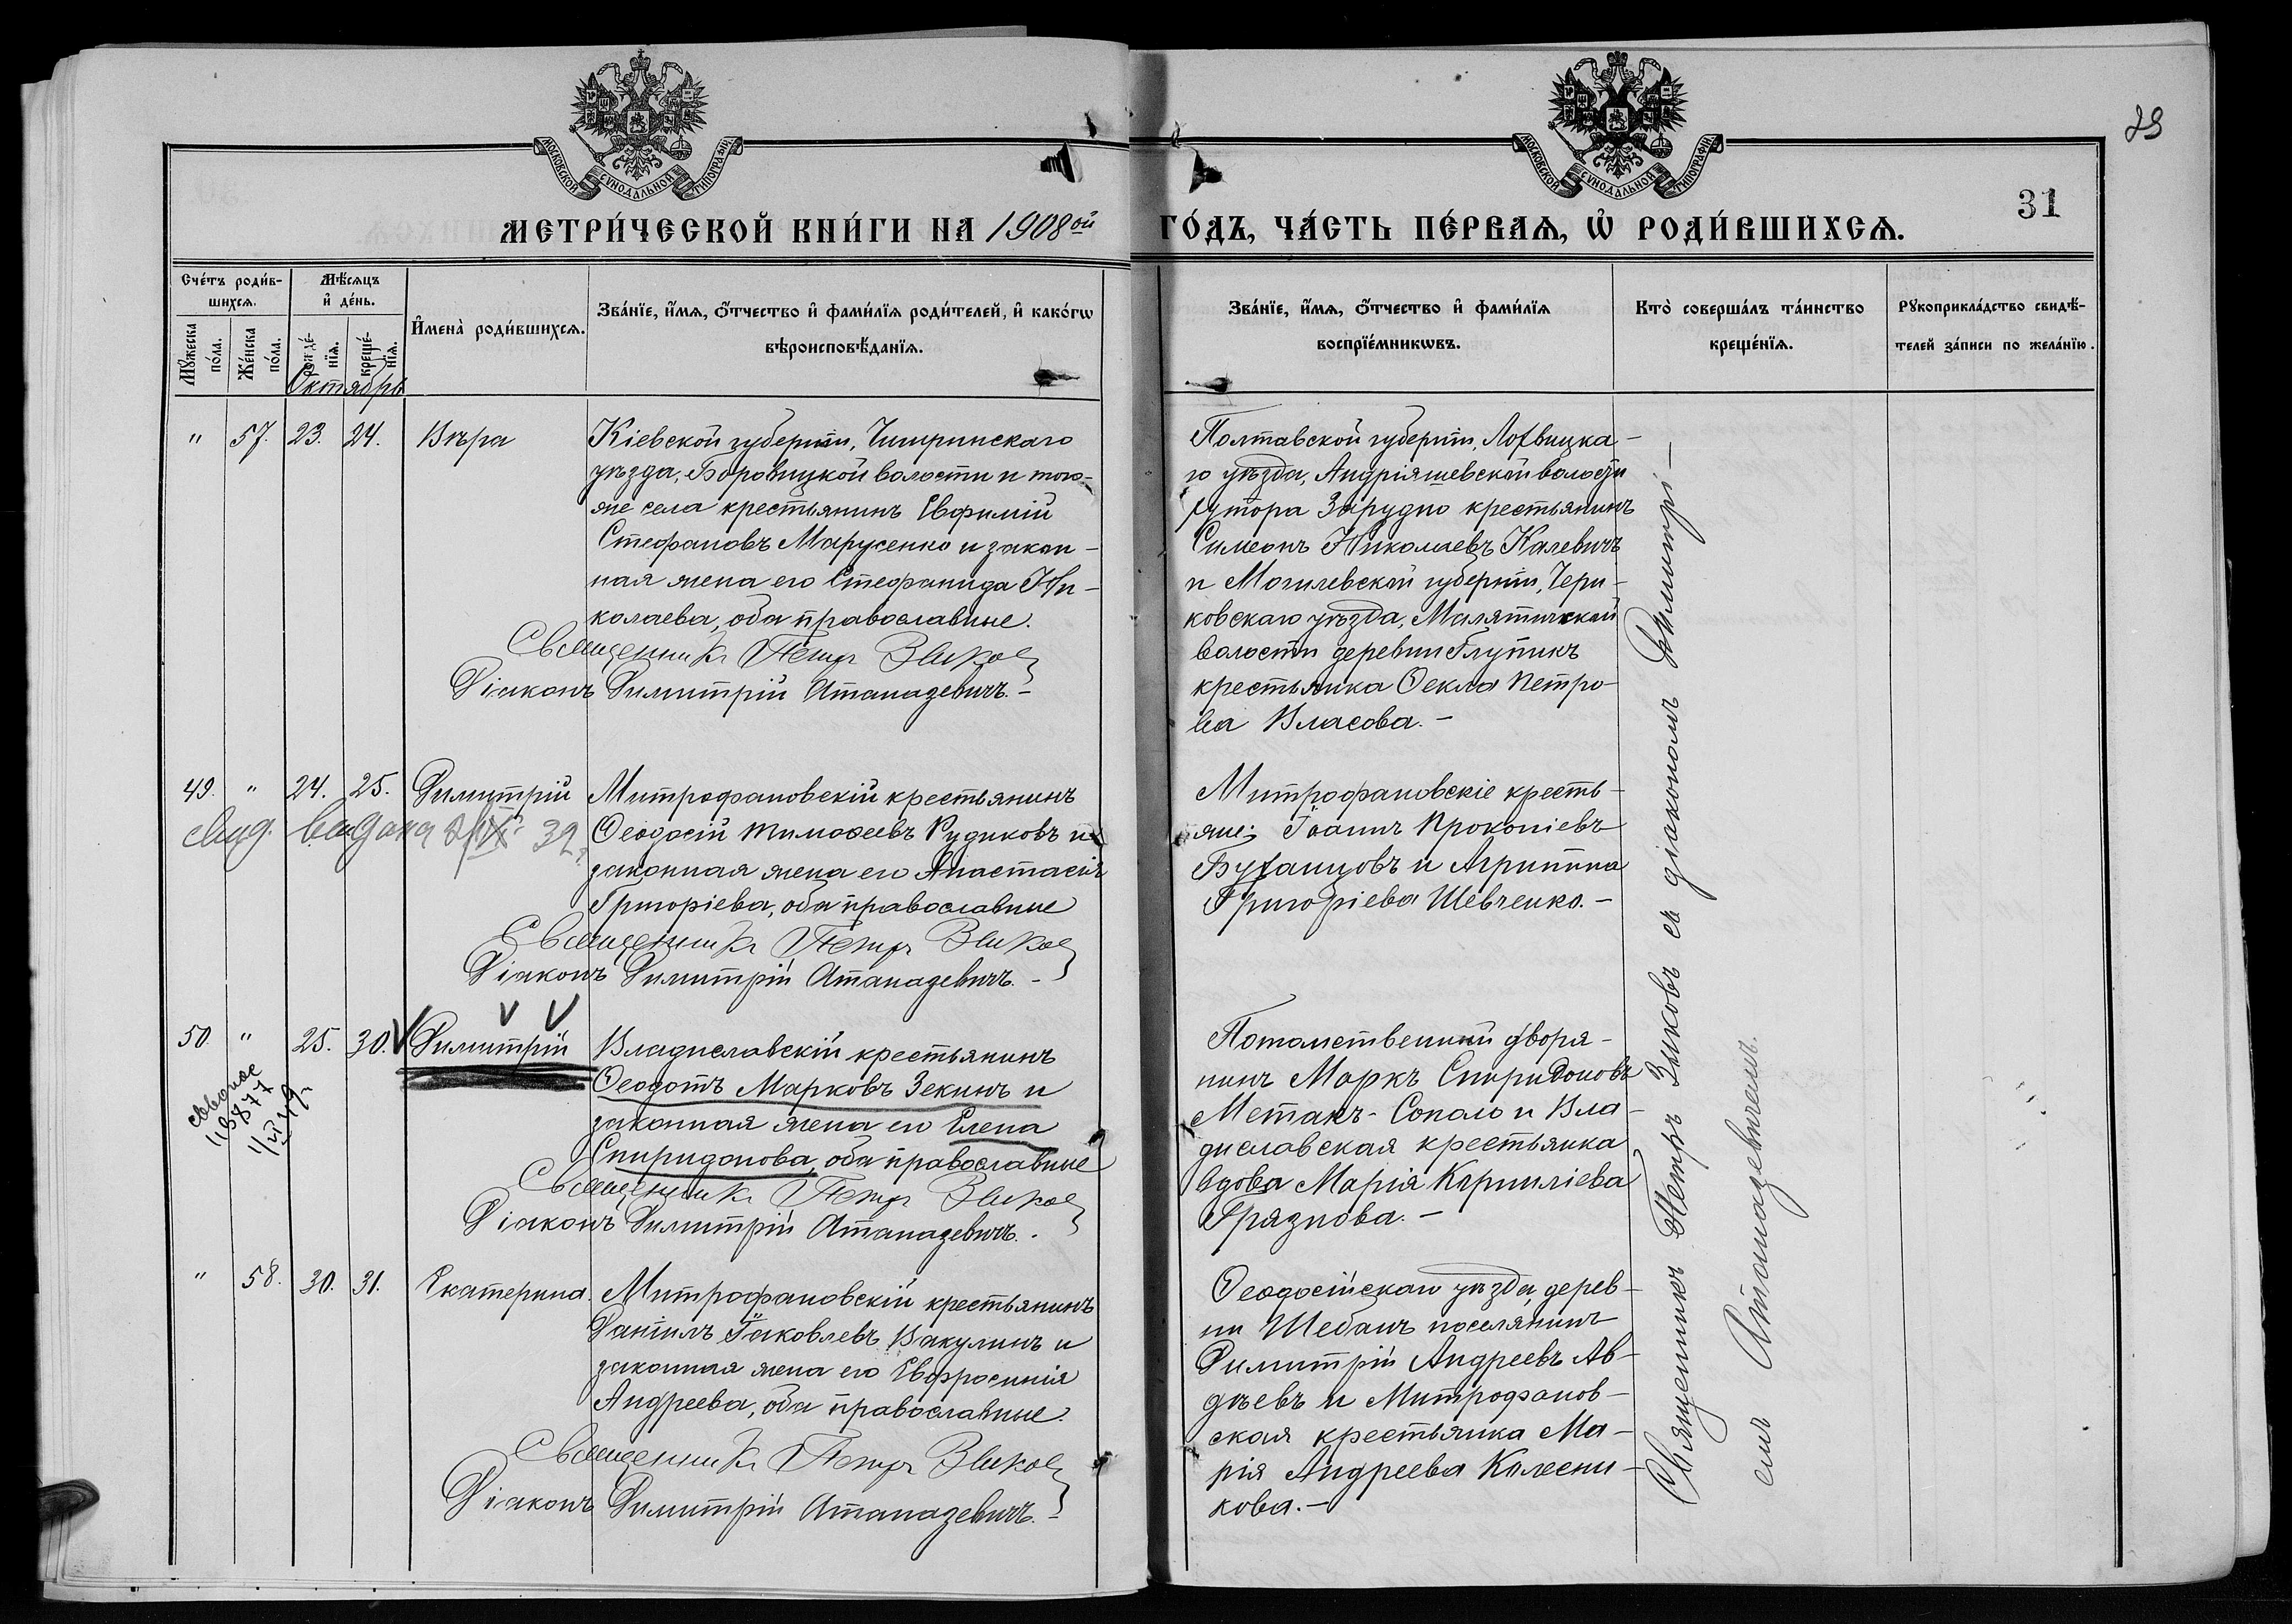 29
31
МОСКОВСКОЙ СѴНОДАЛЬНОЙ ТИПОГРАФІИ
МОСКОВСКОЙ СѴНОДАЛЬНОЙ ТИПОГРАФІИ
МЕТРИ́ЧЕСКОЙ КНИ́ГИ НА 1908ой ГО́ДЪ, ЧА́СТЬ ПЕ́РВАѦ, Ѽ РОДИ́ВШИХСѦ.
Сче́тъ роди́в-
шихся.
Мꙋжеска по́ла.
Же́нска по́ла.
Мѣ́сѧцъ
и҆ де́нь.
рожде́нїѧ.
креще́нїѧ.
Октябрь
И҆мена̀ роди́вшихсѧ.
Зва́нїе, и҆́мѧ, ѻ҆́тчество и҆ фами́лїѧ роди́телей, и҆ како́гѡ
вѣроисповѣ́данїѧ.
Зва́нїе, и҆́мѧ, ѻ҆́тчество и҆ фами́лїѧ
воспрїе́мникѡвъ.
Кто̀ соверша́лъ та́инство
креще́нїѧ.
Рꙋкоприкла́дство свидѣ́-
телей за́писи по жела́нїю.
" 57. 23. 24. Вѣра
Кіевской губерніи, Чигринскаго
уѣзда, Боровицкой волости и того-
же села крестьянинъ Евфимій
Стефановъ Марусенко и закон-
ная жена его Стефанида Ни-
колаева, оба православные.
Священникъ Петръ Зыковъ
Діаконъ Димитрій Атанадевичъ.-
Полтавской губерніи, Лохвицка-
го уѣзда, Андріяшевской волости
хутора Зарудно крестьянинъ
Симеонъ Николаевъ Калевичъ
и Могилевской губерніи, Чери-
ковскаго уѣзда, Малятичской
волости деревни Глупикъ
крестьянка Ѳекла Петро-
ва Власова.-
49. " 24. 25. Димитрій
свид. выдана 32
Митрофановскій крестьянинъ
Ѳеодосій Тимоѳеевъ Рудиковъ и
законная жена его Анастасія
Григоріева, оба православные
Священникъ Петръ Зыковъ
Діаконъ Димитрій Атанадевичъ.-
Митрофановскіе кресть-
яне: Іоаннъ Прокопіевъ
Буханцовъ и Агриппина
Григоріева Шевченко.-
50. " 25. 30. Димитрій
11877
Владиславскій крестьянинъ
Ѳеодотъ Марковъ Зекинъ и
законная жена его Елена
Спиридонова, оба православные
Священникъ Петръ Зыковъ
Діаконъ Димитрій Атанадевичъ.
Потомственный дворя-
нинъ Маркъ Спиридоновъ
Метакъ-Сопало и Вла-
диславская крестьянка
вдова Марія Корниліева
Грязнова.-
" 58. 30. 31. Екатерина.
Митрофановскій крестьянинъ
Даніилъ Іаковлевъ Вакулинъ и
законная жена его Евфросинія
Андреева, оба православные.
Священникъ Петръ Зыковъ
Діаконъ Димитрій Атанадевичъ.-
Ѳеодосійскаго уѣзда, дерев-
ни Шебанъ поселянинъ
Димитрій Андреевъ Ав-
дѣевъ и Митрофанов-
ская крестьянка Ма-
рія Андреева Колесни-
кова.-
Священникъ Петръ Зыковъ съ діакономъ Димитрі-
емъ Атанадевичемъ.